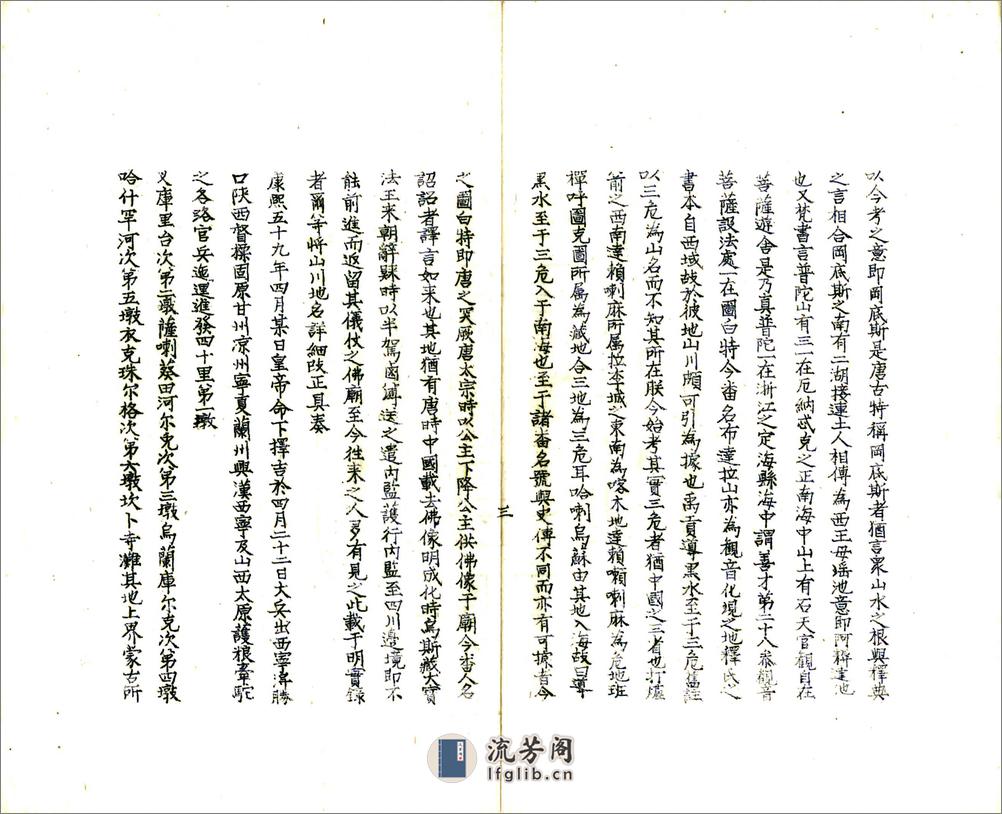 以今考之意即岡底斯是唐古特稱岡底斯者猶言衆山水之根與釋典
之言相合岡底斯之南有二湖接連土人相傳為西王母瑶池意即阿耨達池
也又梵書言普陀山有三一在厄納忒克之正南海中山上有石天宫觀自在
菩薩遊舍是乃真普陀一在浙江之定海縣海中謂善才第二十八叅觀音
菩薩說法處一在圖白特今番名布達拉山亦為觀音化現之地釋氏之
書本自西域故於彼地山川頗可引為據也禹貢導黑水至于三危舊註
以三危為山名而不知其所在朕今始考其實三危者猶中國之三省也打煎爐
前之西南達賴喇麻所属拉李城之東南為喀木地達賴喇麻為危地班
禪呼圖克圖所属為藏地合三地為三危耳哈喇烏蘇由其地入海故曰導
黑水至于三危入于南海也至于諸番名號與史傳不同而亦有可據者今
三
之圖白特即唐之突厥唐太宗時以公主下降公主供佛像于廟今番人名
詔詔者譯言如来也其地猶有唐時中國載去佛像明成化時烏斯藏大寶
法王来朝辭歸時以半駕鹵簿送之遣内監護行内監至四川邊境即不
能前進而返留其儀仗之佛廟至今徃来之人多有見之此載于明實録
者爾等將山川地名詳細改正具奏
康熙五十九年四月某日皇帝命下擇吉於四月二十二日大兵出西寧
口陝西督標固原甘州凉州寧夏蘭州興漢西寧及山西太原護粮
之各路官兵迤邐進發四十里第一墩
又庫里台次第二墩薩喇葵田河尔兔次第三墩烏蘭庫尔克次第四墩
哈什罕河次第五墩衣克珠尔格次第六墩坎卜寺灘其地上界蒙古所
流芳阁
lfglib.cn